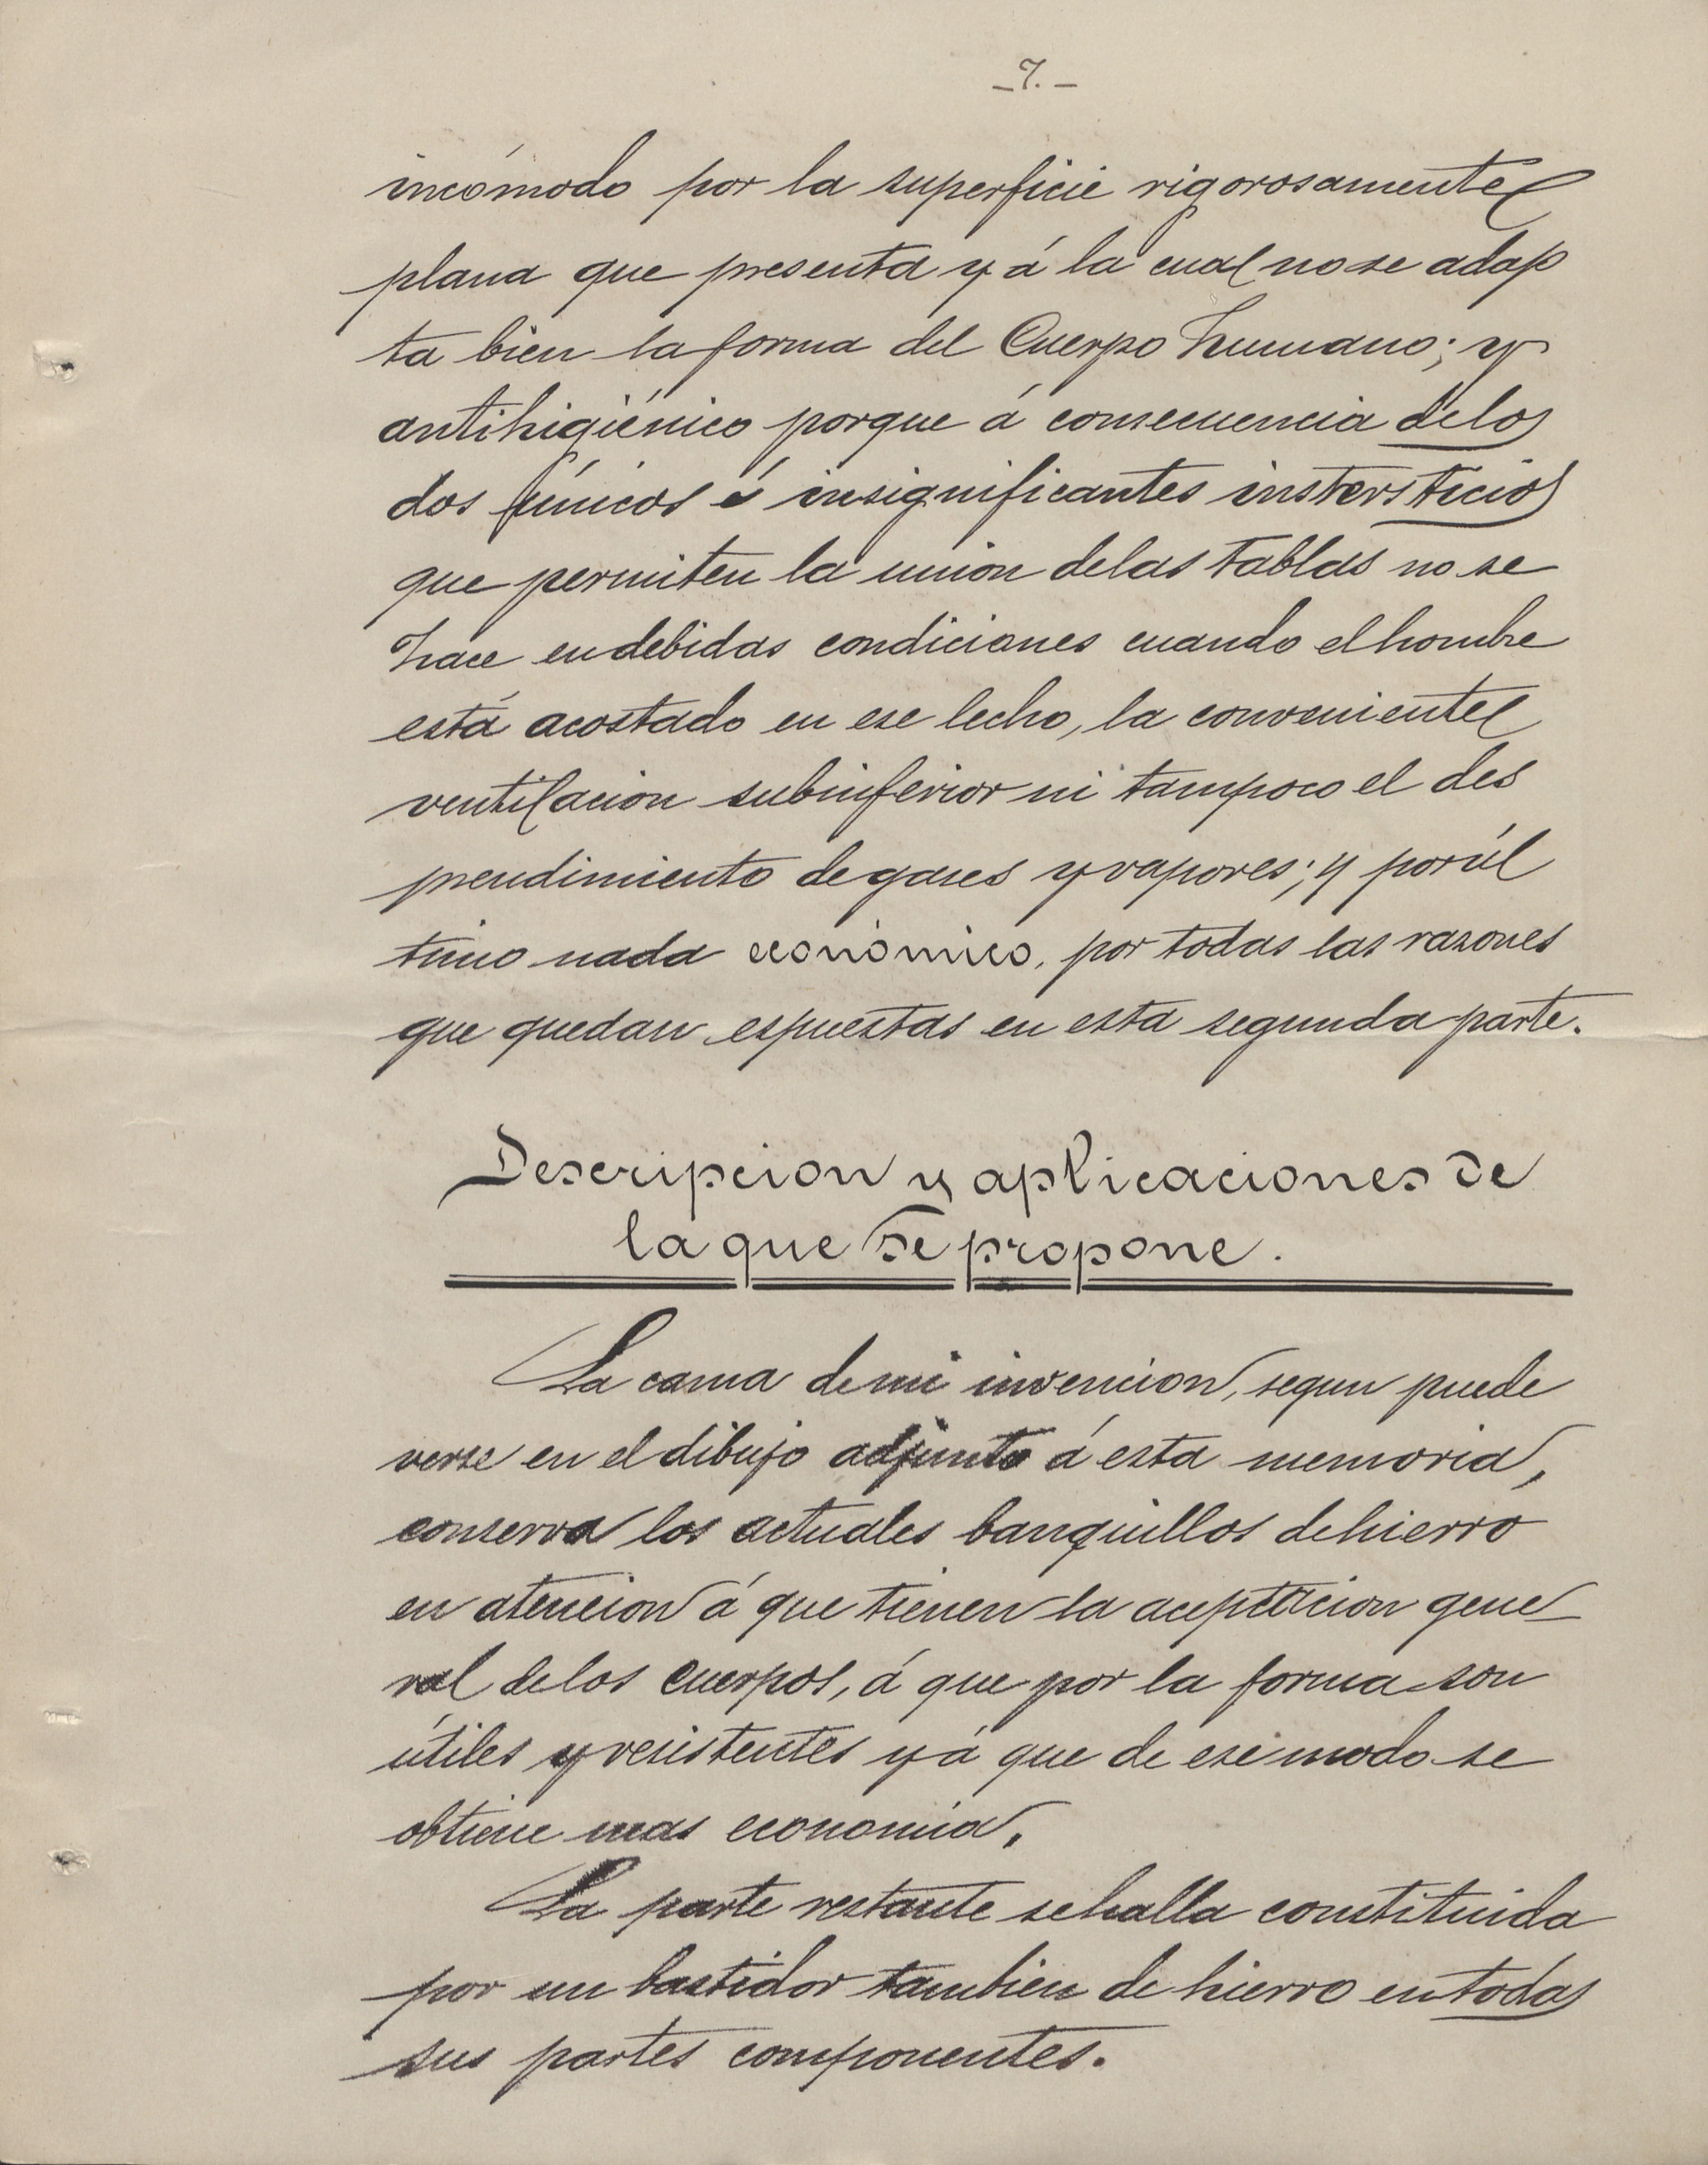 -7.-
incómodo por la superficie rigorosamente
plana que presenta y á la cual no se adap
ta bien la forma del Cuerpo humano; y
antihigiénico porque á consecuencia de los
dos únicos é insignificantes instersticios
que permiten la union de las tablas no se
hace en debidas condiciones cuando el hombre
está acostado en ese lecho, la conveniente
ventilacion subinferior ni tampoco el des
prendimiento de gases y vapores; y por úl
timo nada económico, por todas las razones
que quedan espuestas en esta segunda parte.
Descripcion y aplicaciones de
la que se propone.
La cama de mi invencion, segun puede
verse en el dibujo adjunto á esta memoria,
conserva los actuales banquillos de hierro
en atencion á que tienen la aceptacion gene-
ral de los cuerpos, á que por la forma son
útiles y resistentes y á que de ese modo se
obtiene mas economia.
La parte restante se halla constituida
por un bastidor tambien de hierro en todas
sus partes componentes.